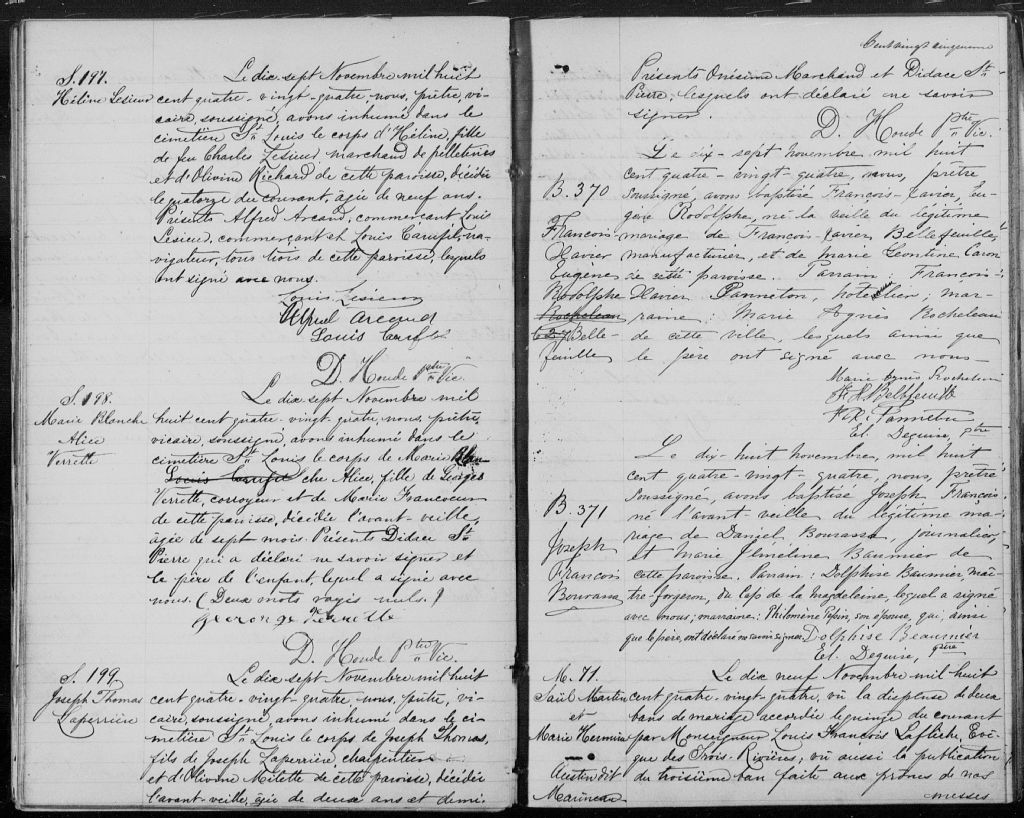 S. 197.
Hélène Lesieur
Le dix sept Novembre mil huit
cent quatre-vingt-quatre, nous, prêtre, vi-
caire, soussigné, avons inhumé dans le
cimetière St Louis le corps d'Hélène, fille
de feu Charles Lesieur marchand de pelleteries
et d'Olivine Richard de cette paroisse, décédée
le quatorze du courant, âgée de neuf ans.
Présents Alfred Arcand, commerçant Louis
Lesieur, commerçant et Louis Carufel, na-
vigateur, tous trois de cette paroisse, lesquels
ont signé avec nous.
Louis Lesieur
Alfred Arcand
Louis Carufel
D. Houde Ptre Vic.
S. 198.
Marie Blanche
Alice
Verrette
Le dix sept Novembre mil
huit cent quatre-vingt-quatre, nous, prêtre,
vicaire, soussigné, avons inhumé dans le
cimetière St Louis le corps de Marie Blan-
Louis Carufel che Alice, fille de Georges
Verrette, corroyeur et de Marie Francoeur
de cette paroisse, décédée l'avant-veille,
âgée de sept mois. Présents Didace St
Pierre qui a déclaré ne savoir signer et
le père de l'enfant, lequel a signé avec
nous. (Deux mots rayés nuls.)
George Verrette
D. Houde Ptre Vic.
S. 199
Joseph Thomas
Laperrière
Le dix sept Novembre mil huit
cent quatre-vingt-quatre, nous, prêtre, vi-
caire, soussigné, avons inhumé dans le ci-
metière St Louis le corps de Joseph Thomas,
fils de Joseph Laperrière, charpentier
et d'Olivine Milette de cette paroisse, décédé
l'avant-veille, âgé de deux ans et demi.
Cent vingt cinquième
Présents Onésime Marchand et Didace St
Pierre, lesquels ont déclaré ne savoir
signer.
D. Houde Ptre Vic.
B. 370
François
Xavier
Eugène
Rodolphe
Rocheleau
Belle-
feuille
Le dix-sept novembre mil huit
cent quatre-vingt-quatre, nous, prêtre
soussigné, avons baptisé François-Xavier, Eu-
gène Rodolphe, né la veille du légitime
mariage de François-Xavier Bellefeuille,
manufacturier, et de Marie Léontine Caron
de cette paroisse. Parrain François-
Xavier Panneton, hotellier; mar-
raine: Marie Agnès Rocheleau
de cette ville, lesquels ainsi que
le père ont signé avec nous-
Marie Agnès Rocheleau
F X Bellefeuille
F. X. Panneton
El. Deguise, ptre
B. 371
Joseph
François
Bourassa
Le dix-huit novembre, mil huit
cent quatre-vingt quatre, nous, prêtre
soussigné, avons baptisé Joseph François
né l'avant-veille du légitime ma-
riage de Daniel Bourassa, journalier,
et Marie Elméline Baumier de
cette paroisse. Parrain: Dolphise Baumier, maî-
tre-forgeron, du Cap de la Magdeleine, lequel a signé
avec nous; marraine: Philomène Pepin, son épouse, qui, ainsi
que le père, ont déclaré ne savoir signer.
Dolphise Beaumier
El. Deguise, ptre
M. 71.
Saül Martin
et
Marie Herminie
Austin dit
Marineau
Le dix neuf Novembre mil huit
cent quatre-vingt-quatre, vû la dispense de deux
bans de mariage accordée le quinze du courant
par Monseigneur Louis François Laflèche, Evê-
que des Trois-Rivières; vû aussi la publication
du troisième ban faite aux prônes de nos
messes